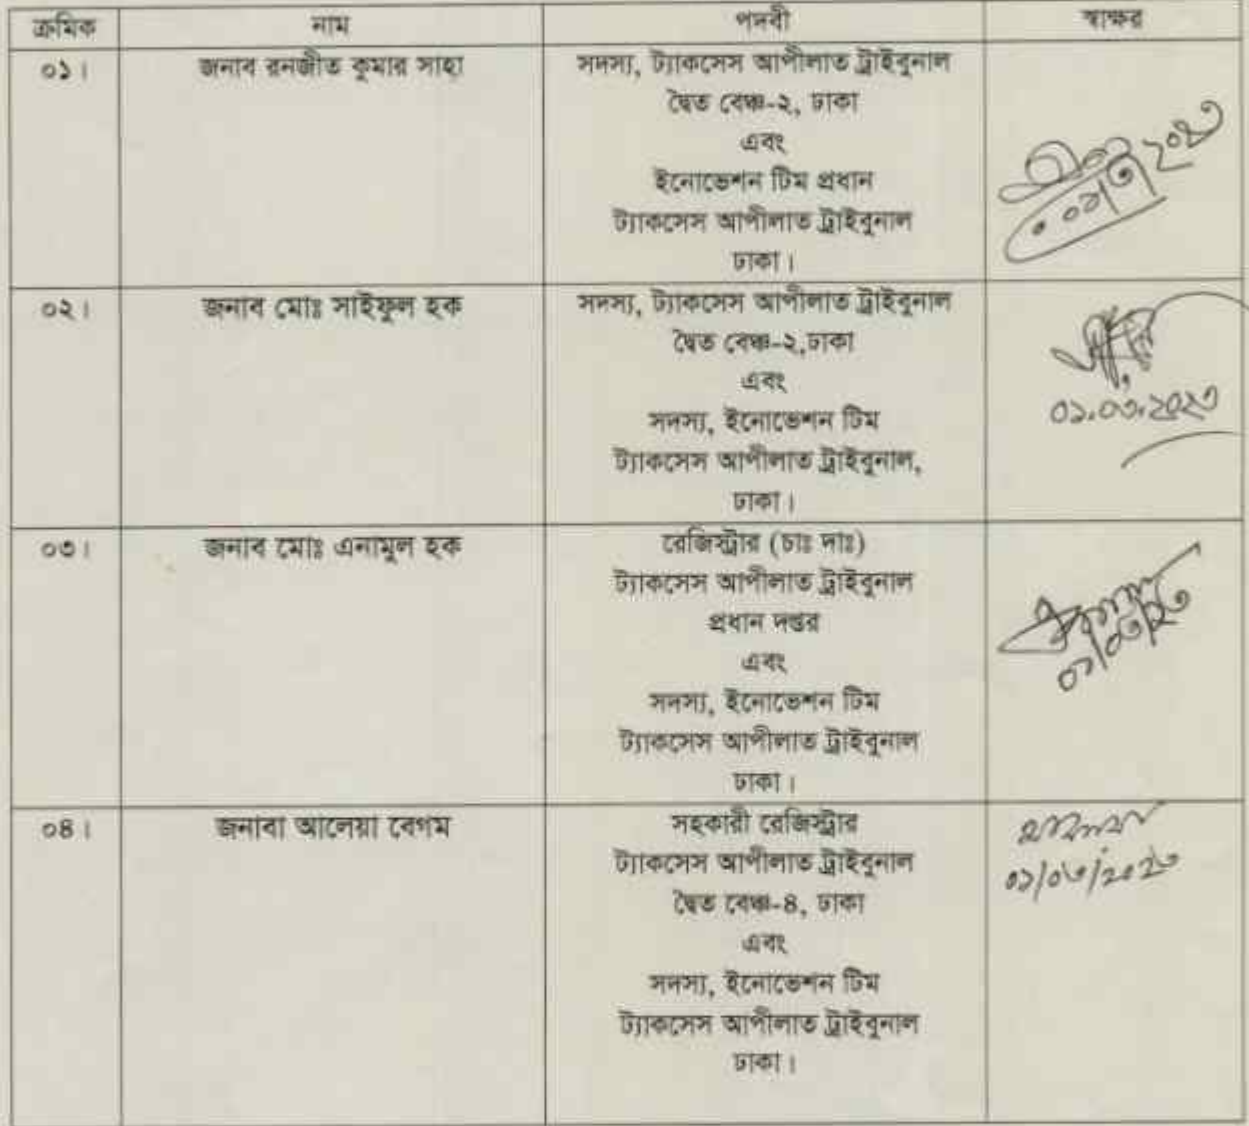 ক্রমিক নাম পদবী স্বাক্ষর
০১। জনাব রনজীত কুমার সাহা সদস্য, ট্যাকসেস আপীলাত ট্রাইবুনাল
দ্বৈত বেঞ্চ-২, ঢাকা
এবং
ইনোভেশন টিম প্রধান
ট্যাকসেস আপীলাত ট্রাইবুনাল
ঢাকা।
০২। জনাব মোঃ সাইফুল হক সদস্য, ট্যাকসেস আপীলাত ট্রাইবুনাল
দ্বৈত বেঞ্চ-২,ঢাকা
এবং
০১.০৩.২০২৩
সদস্য, ইনোভেশন টিম
ট্যাকসেস আপীলাত ট্রাইবুনাল,
ঢাকা।
০৩। জনাব মোঃ এনামুল হক রেজিস্ট্রার (চাঃ দাঃ)
ট্যাকসেস আপীলাত ট্রাইবুনাল
প্রধান দপ্তর
এবং
০১/০৩/২৩
সদস্য, ইনোভেশন টিম
ট্যাকসেস আপীলাত ট্রাইবুনাল
ঢাকা।
০৪। জনাবা আলেয়া বেগম সহকারী রেজিস্ট্রার
ট্যাকসেস আপীলাত ট্রাইবুনাল
০১/০৩/২০২৩
দ্বৈত বেঞ্চ-৪, ঢাকা
এবং
সদস্য, ইনোভেশন টিম
ট্যাকসেস আপীলাত ট্রাইবুনাল
ঢাকা।